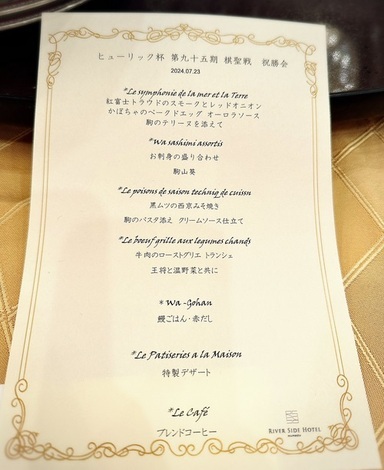 ヒューリック杯 第九十五期 棋聖戦 祝勝会
2024.07.23
*Le symphonie de la mer et la Terre
紅富士トラウドのスモークとレッドオニオン
かぼちゃのベークドエッグ オーロラソース
駒のテリーヌを添えて
*Wa sashimi assortis
お刺身の盛り合わせ
駒山葵
*Le poisons de saison techniq de cuissn
黒ムツの西京みそ焼き
駒のパスタ添え クリームソース仕立て
*Le boeuf grille aux legumes chands
牛肉のローストグリエ トランシェ
王将と温野菜と共に
*Wa-Gohan
鰻ごはん・赤だし
*Le Patiseries a la Maison
特製デザート
*Le Café
ブレンドコーヒー
RIVER SIDE HOTEL